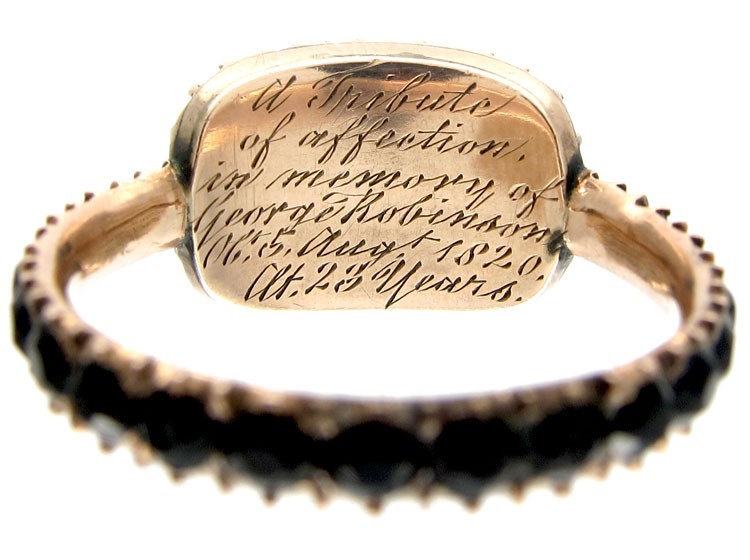 A Tribute
of affection.
in memory of
George Robinson
Ob. 5. Augt. 1820.
At. 23 Years.